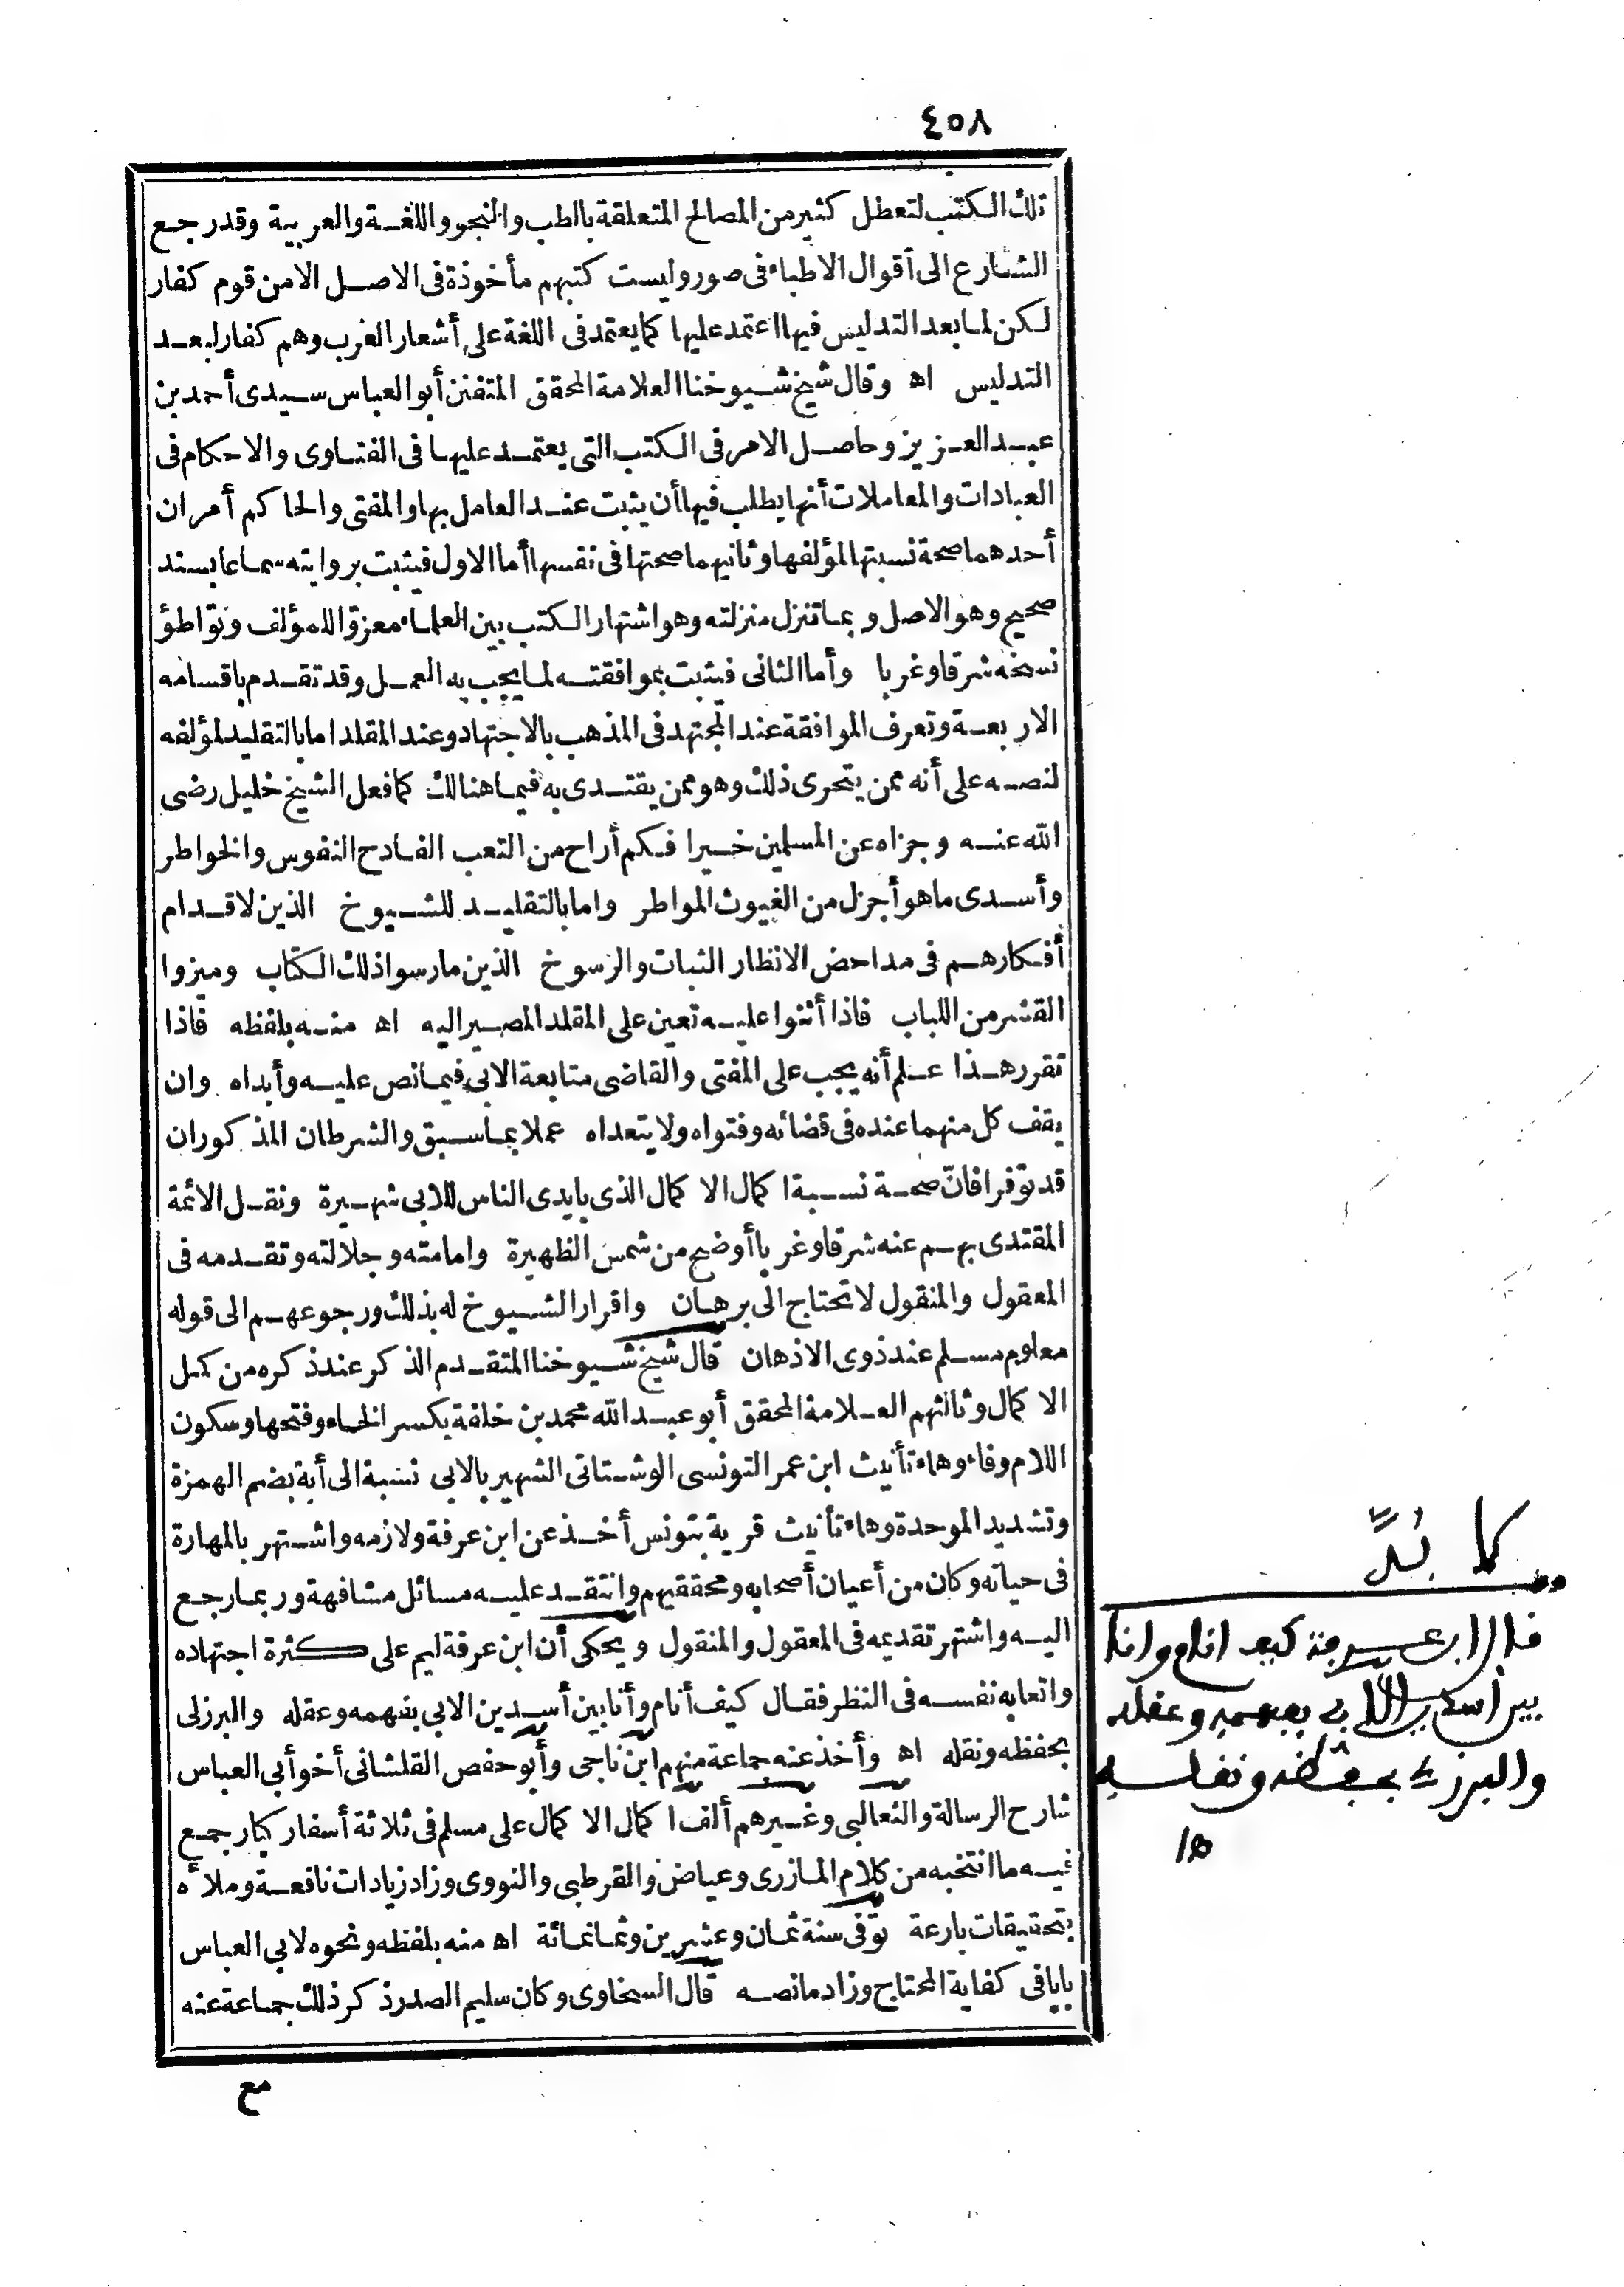 ٤٥٨
تلك الكتب لتعطل كثير من المصالح المتعلقة بالطب والنحو واللغة والعربية وقد رجع
الشارع الى أقوال الاطباء فى صور وليست كتبهم مأخوذة فى الاصل الا من قوم كفار
لكن لما بعد التدليس فيها اعتمد عليها كما يعتمد فى اللغة على أشعار العرب وهم كفار لبعد
التدليس اه وقال شيخ شيوخنا العلامة المحقق المتفنن أبو العباس سيدى أحمد بن
عبد العزيز وحاصل الامر فى الكتب التى يعتمد عليها فى الفتاوى والاحكام فى
العبادات والمعاملات أنها يطلب فيها أن يثبت عند العامل بها والمفتى والحاكم أمران
أحدهما صحة نسبتها لمؤلفها وثانيهما صحتها فى نفسها أما الاول فيثبت بروايته سماعا بسند
صحيح وهو الاصل وبما تنزل منزلته وهو اشتهار الكتب بين العلماء معزوا للمؤلف وتواطؤ
نسخه شرقا وغربا وأما الثانى فيثبت بموافقته لما يجب به العمل وقد تقدم باقسامه
الاربعة وتعرف الموافقة عند المجتهد فى المذهب بالاجتهاد وعند المقلد اما بالتقليد لمؤلفه
لنصه على أنه ممن يتحرى ذلك وهو ممن يقتدى به فيما هنالك كما فعل الشيخ خليل رضى
الله عنه وجزاه عن المسلمين خيرا فكم أراح من التعب الفادح النفوس والخواطر
وأسدى ما هو أجزل من الغيوث المواطر واما بالتقليد للشيوخ الذين لاقدام
أفكارهم فى مداحض الانظار الثبات والرسوخ الذين مارسوا ذلك الكتاب وميزوا
القشر من اللباب فاذا أثنوا عليه تعين على المقلد المصير اليه اه منه بلفظه فاذا
تقرر هذا علم أنه يجب على المفتى والقاضى متابعة الابى فيما نص عليه وأبداه وان
يقف كل منهما عنده فى قضائه وفتواه ولا يتعداه عملا بما سبق والشرطان المذكوران
قد توفرا فان صحة نسبة اكمال الاكمال الذى بايدى الناس للابى شهيرة ونقل الائمة
المقتدى بهم عنه شرقا وغربا أوضح من شمس الظهيرة وامامته وجلالته وتقدمه فى
المعقول والمنقول لا تحتاج الى برهان واقرار الشيوخ له بذلك ورجوعهم الى قوله
معلوم مسلم عند ذوى الاذهان قال شيخ شيوخنا المتقدم الذكر عند ذكره من كمل
الاكمال وثالثهم العلامة المحقق أبو عبد الله محمد بن خلفة بكسر الخاء وفتحها وسكون
اللام وفاء وهاء تأنيث ابن عمر التونسى الوشتانى الشهير بالابى نسبة الى أبة بضم الهمزة
وتشديد الموحدة وهاء تأنيث قرية بتونس أخذ عن ابن عرفة ولازمه واشتهر بالمهارة
فى حياته وكان من أعيان أصحابه ومحققيهم وانتقد عليه مسائل مشافهة وربما رجع
اليه واشتهر تقديمه فى المعقول والمنقول ويحكى أن ابن عرفة ليم على كثرة اجتهاده
واتعابه نفسه فى النظر فقال كيف أنام وأنا بين أسدين الابى بفهمه وعقله والبرزلى
بحفظه ونقله اه وأخذ عنه جماعة منهم ابن ناجى وأبو حفص القلشانى أخو أبى العباس
شارح الرسالة والثعالبى وغيرهم ألف اكمال الاكمال على مسلم فى ثلاثة أسفار كبار جمع
فيه ما انتخبه من كلام المازرى وعياض والقرطبى والنووى وزاد زيادات نافعة وملأه
بتحقيقات بارعة توفى سنة ثمان وعشرين وثمانمائة اه منه بلفظه ونحوه لابى العباس
بابا فى كفاية المحتاج وزاد ما نصه قال السخاوى وكان سليم الصدر ذكر ذلك جماعة عنه
مع
قال ابن عرفة كيف انام وانا
بين أسدين الابي بفهمه وعقله
والبرزلي بحفظه ونقله
اه